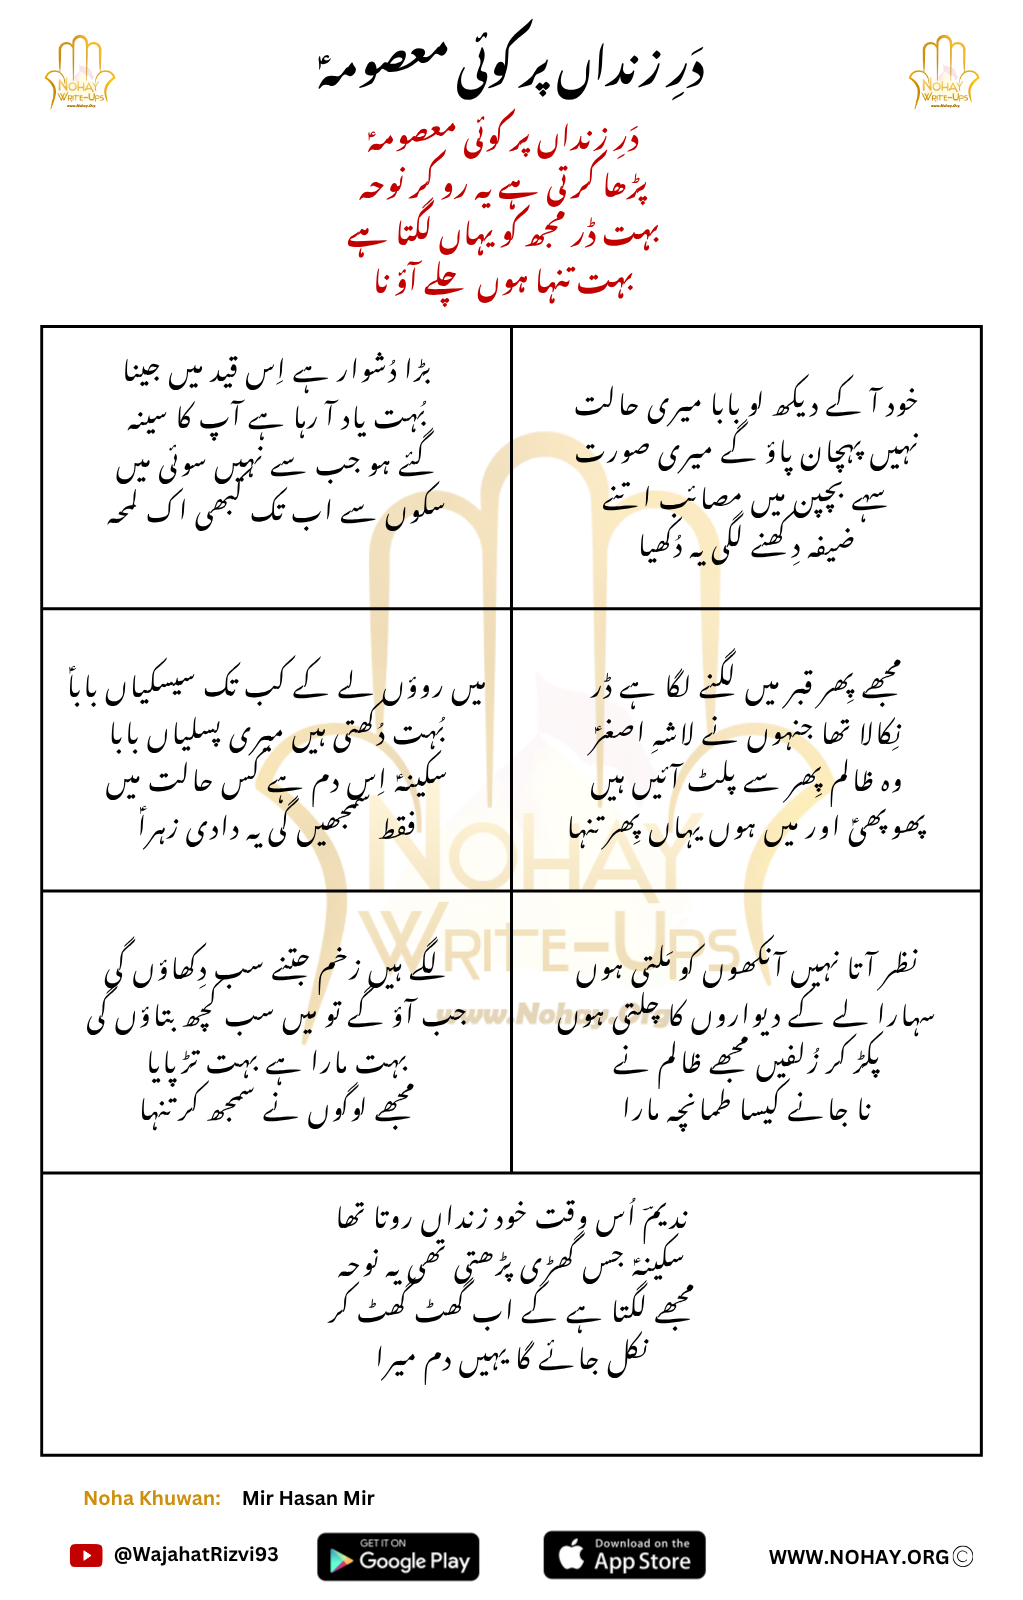 دَرِ زنداں پر کوئی معصومہؑ
NOHAY
WRITE-UPS
www.Nohay.Org
NOHAY
WRITE-UPS
www.Nohay.Org
دَرِ زنداں پر کوئی معصومہؑ
پڑھا کرتی ہے یہ رو کر نوحہ
بہت ڈر مجھ کو یہاں لگتا ہے
بہت تنہا ہوں چلے آؤ نا
خود آ کے دیکھ لو بابا میری حالت
نہیں پہچان پاؤ گے میری صورت
سہے بچپن میں مصائب اتنے
ضیفہ دِکھنے لگی یہ دُکھیا
بڑا دُشوار ہے اِس قید میں جینا
بُہت یاد آ رہا ہے آپ کا سینہ
گئے ہو جب سے نہیں سوئی میں
سکوں سے اب تک کبھی اک لمحہ
مجھے پِھر قبر میں لگنے لگا ہے ڈر
نِکالا تھا جنہوں نے لاشہِ اصغرؑ
وہ ظالم پِھر سے پلٹ آئیں ہیں
پھوپھیؑ اور میں ہوں یہاں پِھر تنہا
میں روؤں لے کے کب تک سیسکیاں باباؑ
بُہت دُکھتی ہیں میری پسلیاں بابا
سکینہؑ اِس دم ہے کس حالت میں
فقط سمجھیں گی یہ دادی زہراؑ
نظر آتا نہیں آنکھوں کو مَلتی ہوں
سہارا لے کے دیواروں کا چلتی ہوں
پکڑ کر زُلفیں مجھے ظالم نے
نا جانے کیسا طمانچہ مارا
لگے ہیں زخم جتنے سب دِکھاؤں گی
جب آؤ گے تو میں سب کچھ بتاؤں گی
بہت مارا ہے بہت تڑپایا
مجھے لوگوں نے سمجھ کر تنہا
NOHAY
WRITE-UPS
www.Nohay.Org
ندیمؔ اُس وقت خود زنداں روتا تھا
سکینہؑ جس گھڑی پڑھتی تھی یہ نوحہ
مجھے لگتا ہے کے اب گھٹ گھٹ کر
نکل جائے گا یہیں دم میرا
Noha Khuwan: Mir Hasan Mir
@WajahatRizvi93
GET IT ON
Google Play
Download on the
App Store
WWW.NOHAY.ORG©